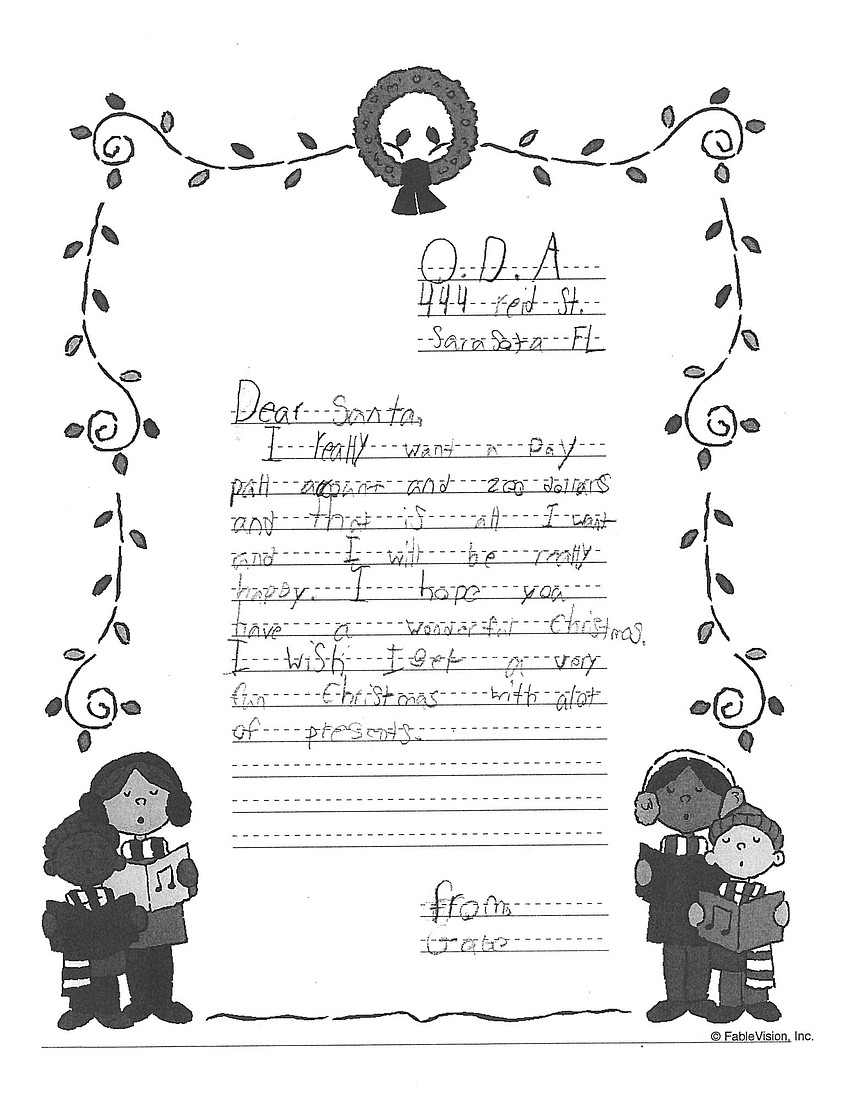 O.D.A
444 reid St.
Sarasota FL
Dear Santa,
I really want a pay
pall acount and 200 dollars
and that is all I want
and I will be really
happy. I hope you
have a wonderful Christmas.
I wish I get a very
fun Christmas with alot
of presents.
from,
Gabe
© FableVision, Inc.